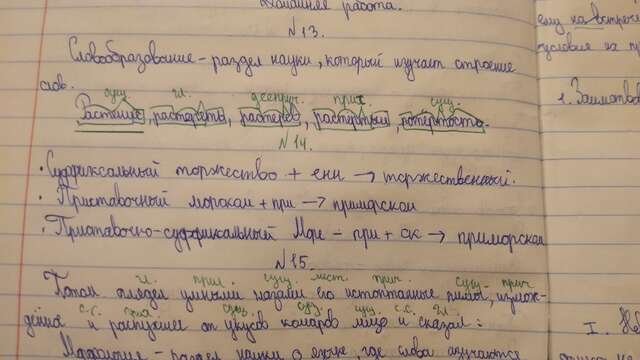 Домашняя работа.
N 13.
Словообразование - раздел науки, который изучает строение
слов.
сущ. гл. дееприч. прич. сущ.
растереть, растерев, растёртый, потёртость.
N 14.
· Суффиксальный торжество + енн → торжественный.
· Приставочный морской + при → приморской
· Приставочно-суффиксальный Море - при + ск → приморской
N 15.
гл. прил. сущ. мест. прич. сущ. прич.
Потом глядел умными глазами его истоптанные измож-
с.с. прич. сущ. сущ. сущ. с.с. гл.
и распухшее от укусов комаров лицо и сказал:
раздел науки о языке, где слова изучаются
ему на встречу
условия
1.
I.